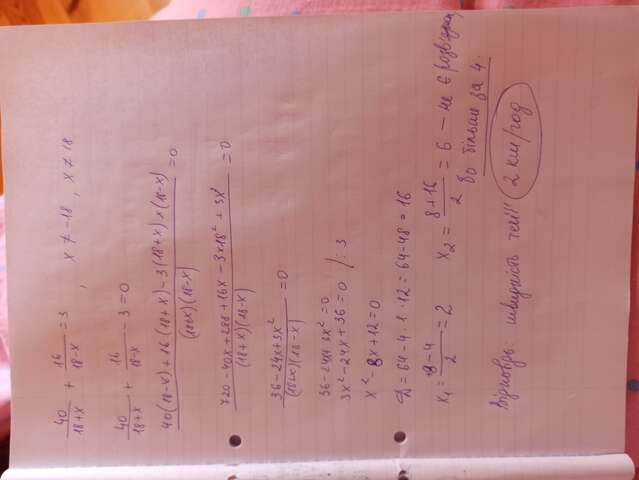 40/(18+x) + 16/(18-x) = 3 , x ≠ -18 , x ≠ 18
40/(18+x) + 16/(18-x) - 3 = 0
(40(18-x) + 16(18+x) - 3(18+x)×(18-x))/((18+x)(18-x)) = 0
(720 - 40x + 288 + 16x - 3×18² + 3x²)/((18+x)(18-x)) = 0
(36 - 24x + 3x²)/((18+x)(18-x)) = 0
36 - 24x + 3x² = 0
3x² - 24x + 36 = 0 /:3
x² - 8x + 12 = 0
D = 64 - 4 · 1 · 12 = 64 - 48 = 16
x₁ = (8-4)/2 = 2 x₂ = (8+16)/2 = 6 - не є розв'язком,
бо більше за 4.
Відповідь: швидкість течії 2 км/год